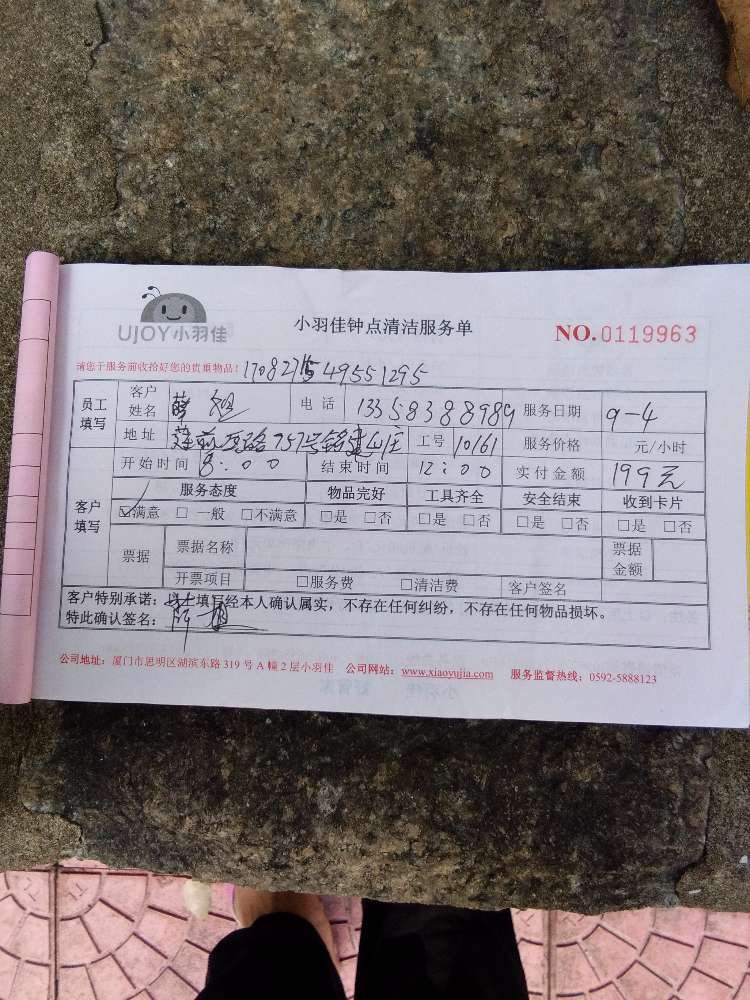 UJOY小羽佳
小羽佳钟点清洁服务单
NO.0119963
请您于服务前收拾好您的贵重物品！
员工填写 客户姓名 电话 13358388989 服务日期 9-4
地址 莲前西路757号 工号 10161 服务价格 元/小时
开始时间 8:00 结束时间 12:00 实付金额 199元
客户填写 服务态度 物品完好 工具齐全 安全结束 收到卡片
☑满意 □ 一般 □不满意 □是 □否 □是 □否 □是 □否 □是 □否
票据 票据名称 票据金额
开票项目 □服务费 □清洁费 客户签名
客户特别承诺：以上填写经本人确认属实，不存在任何纠纷，不存在任何物品损坏。
特此确认签名：
公司地址：厦门市思明区湖滨东路 319 号 A 幢 2 层小羽佳 公司网站：www.xiaoyujia.com 服务监督热线：0592-5888123